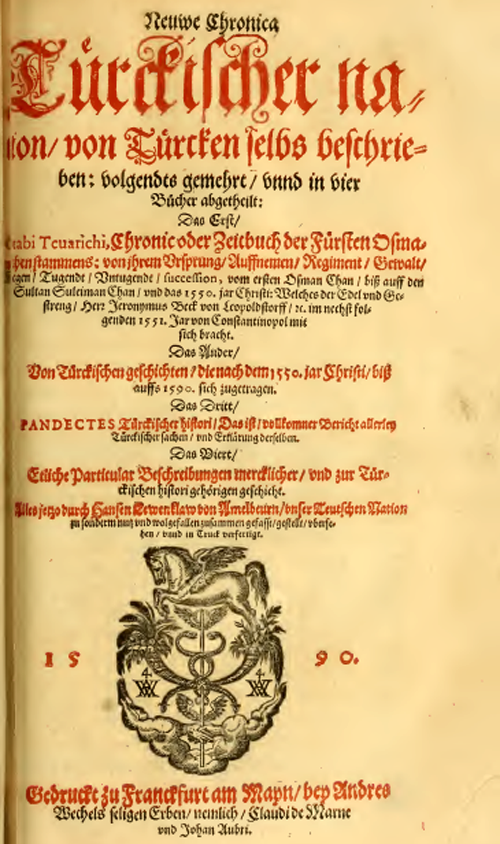 Neuwe Chronica
Türckischer na-
tion/ von Türcken selbs beschrie-
ben: volgendts gemehrt/ vnnd in vier
Bücher abgetheilt:
Das Erst/
Teuarichi, Chronic oder Zeitbuch der Fürsten Osma-
henstammens: von jhrem Vrsprung/ Auffnemen/ Regiment/ Gewalt/
Tugendt/ Vntugendt/ succession, vom ersten Osman Chan/ biß auff den
Sultan Suleiman Chan/ vnd das 1550. jar Christi: Welches der Edel vnd Ge-
streng/ Herr Jeronymus Beck von Leopoldstorff/ ꝛc. im nechst fol-
genden 1551. Jar von Constantinopol mit
sich bracht.
Das Ander/
Von Türckischen geschichten/ die nach dem 1550. jar Christi/ biß
auffs 1590. sich zugetragen.
Das Dritt/
PANDECTES Türckischer histori/ Das ist/ vollkomner Bericht allerley
Türckischer sachen/ vnd Erklärung derselben.
Das Viert/
Etliche Particular Beschreibungen mercklicher/ vnd zur Tür-
ckischen histori gehörigen geschicht.
Alles jetzo durch Hansen Lewenklaw von Amelbeurn/ vnser Teutschen Nation
zu sonderm nutz vnd wolgefallen zusammen gefasst/ gestelt/ vberse-
hen/ vnnd in Truck verfertigt.
15 90.
Gedruckt zu Franckfurt am Mayn/ bey Andres
Wechels seligen Erben/ nemlich/ Claudi de Marne
vnd Johan Aubri.